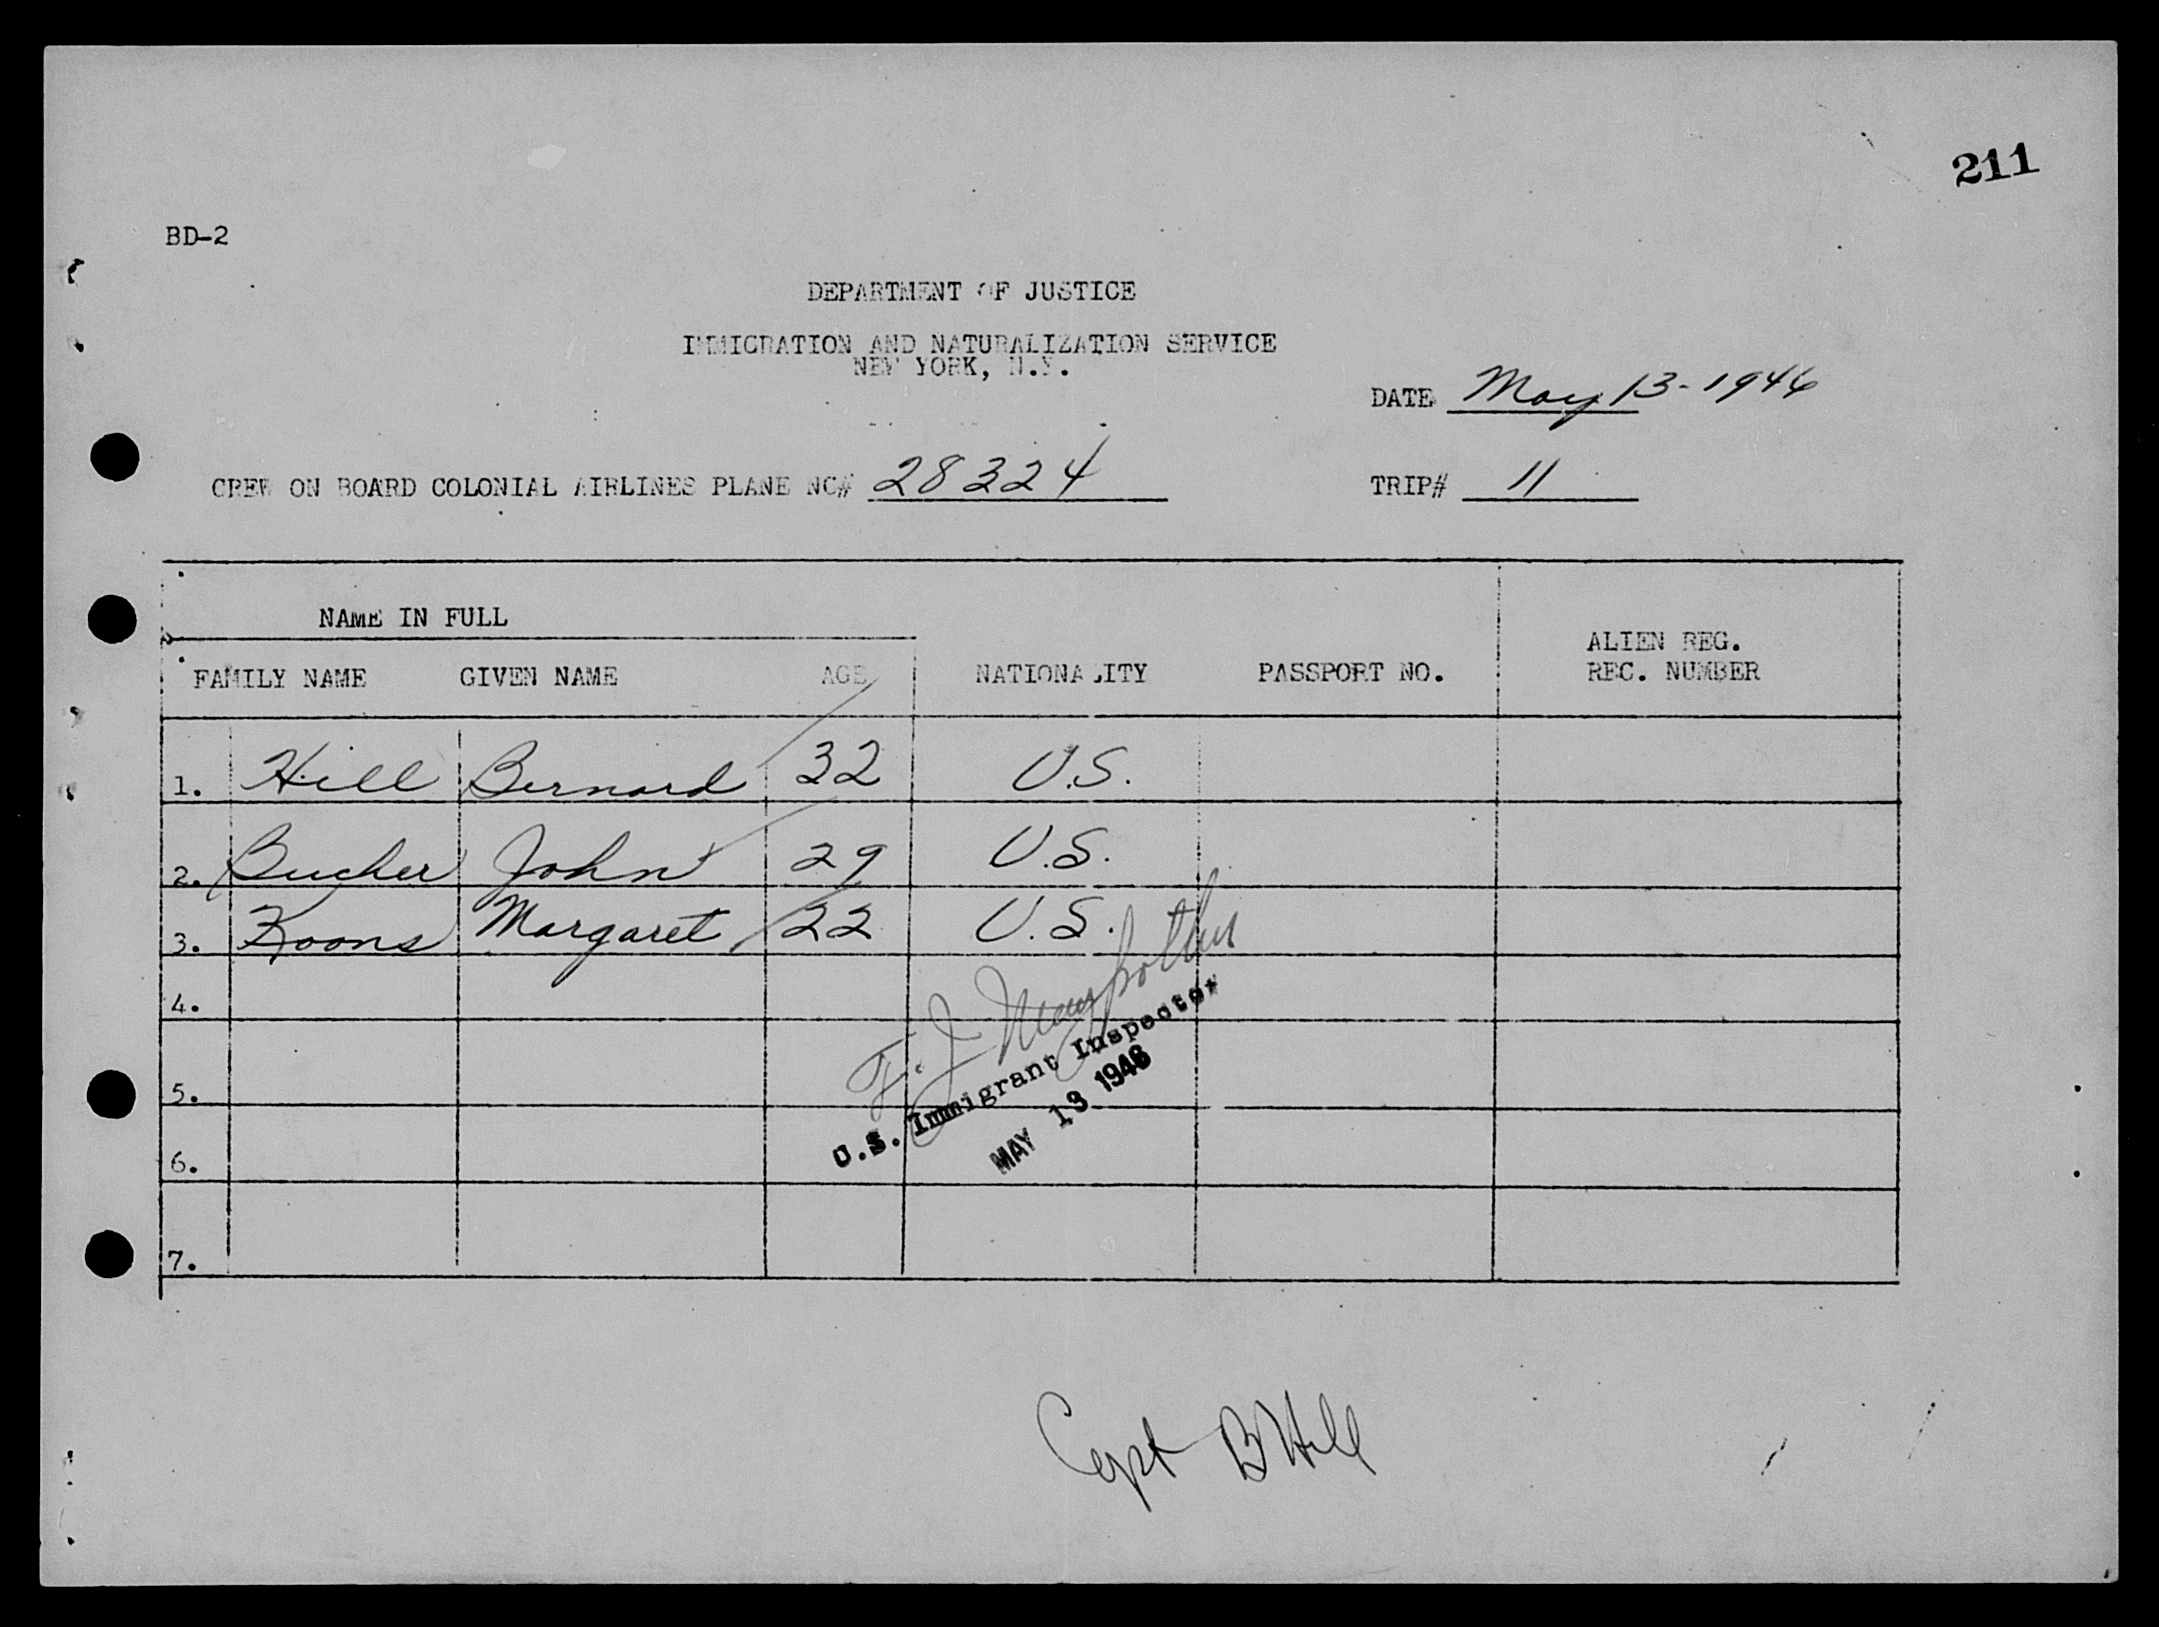 211
BD-2
DEPARTMENT OF JUSTICE
IMMIGRATION AND NATURALIZATION SERVICE
NEW YORK, N.Y.
DATE May 13-1946
CREW ON BOARD COLONIAL AIRLINES PLANE NC# 28324 TRIP# 11
NAME IN FULL
FAMILY NAME GIVEN NAME AGE NATIONALITY PASSPORT NO. ALIEN REG. REC. NUMBER
1. Hill Bernard 32 U.S.
2. Bucher John 29 U.S.
3. Koons Margaret 22 U.S.
4.
F. J.
U.S. Immigrant Inspector
MAY 13 1946
5.
6.
7.
Capt B Hill